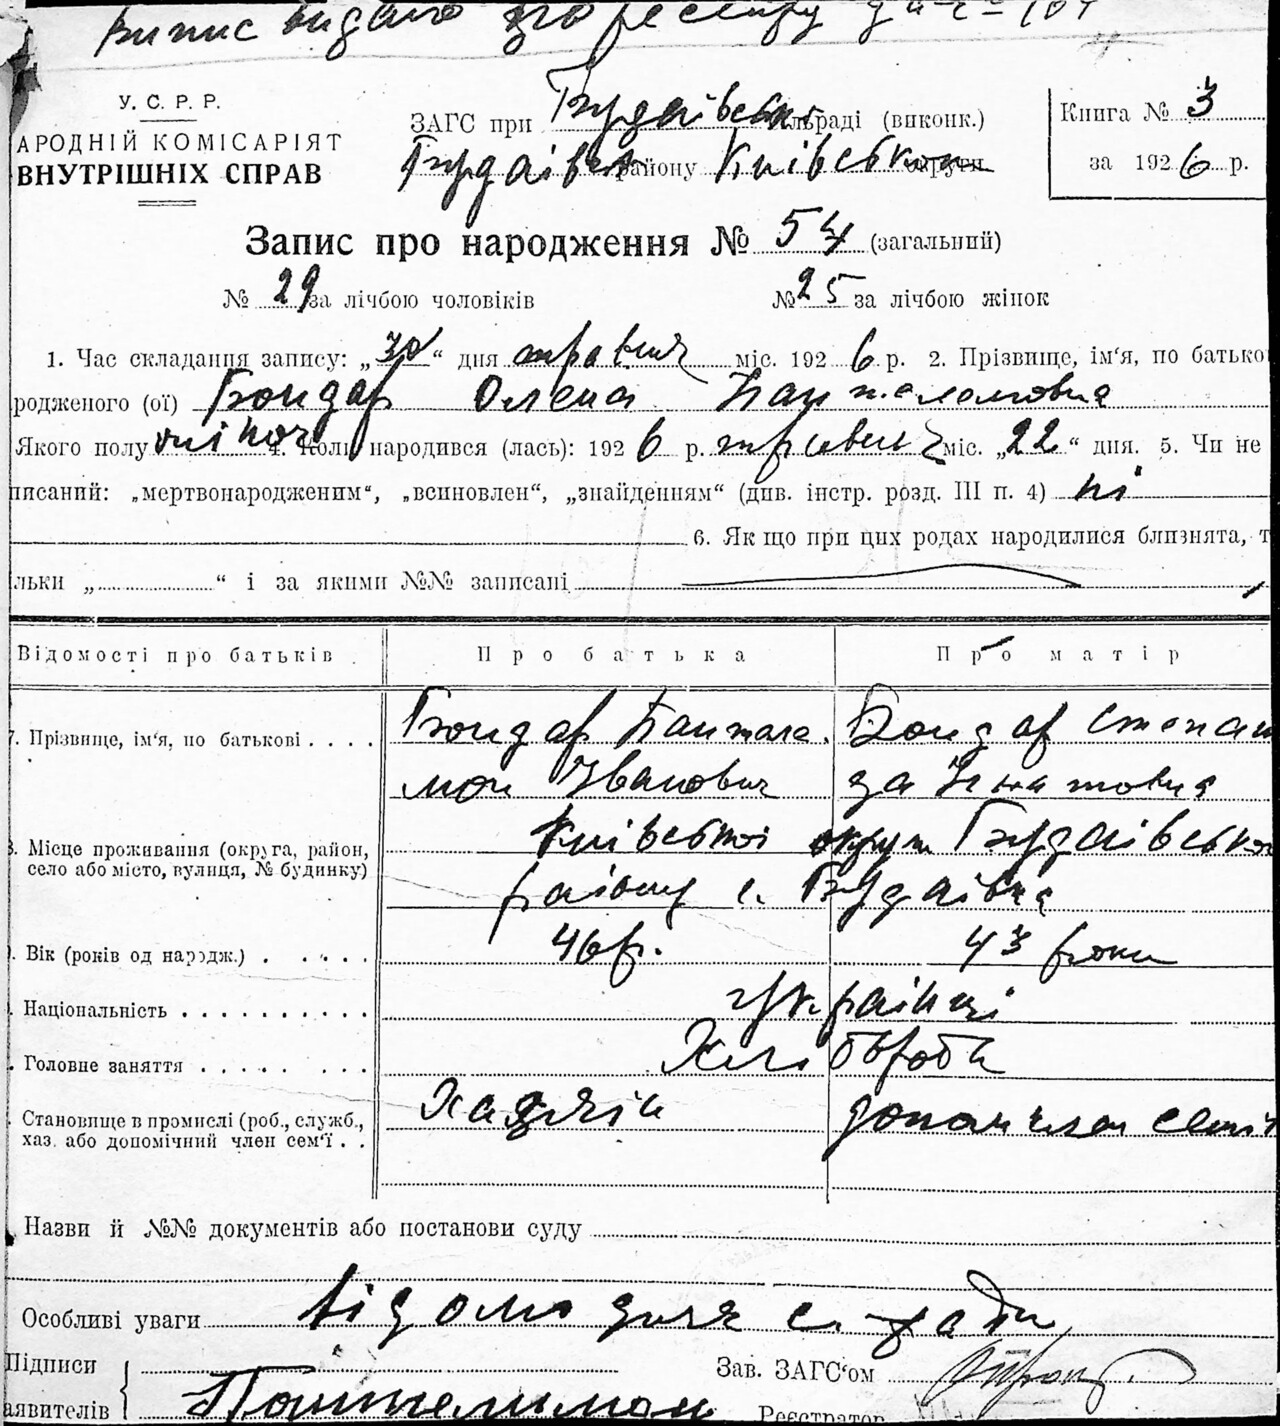 Випис видано по реєстру
У. С. Р. Р.
АРОДНІЙ КОМІСАРІЯТ
ВНУТРІШНІХ СПРАВ
ЗАГС при Будаівські льраді (виконк.)
Будаівсь району Київськои округи
Книга № 3
за 1926 р.
Запис про народження № 54 (загальний)
№ 29 за лічбою чоловіків № 25 за лічбою жінок
1. Час складання запису: „30“ дня травня міс. 1926 р. 2. Прізвище, ім‘я, по батько
родженого (ої) Бондар Олена Пантелемовна
Якого полу жіноч 4. Коли народився (лась): 1926 р. травня міс. „22“ дня. 5. Чи не
писаний: „мертвонародженим“, „всиновлен“, „знайденням“ (див. інстр. розд. III п. 4) ні
6. Як що при цих родах народилися близнята, т
льки „ “ і за якими №№ записані
Відомості про батьків Про батька Про матір
7. Прізвище, ім‘я, по батькові Бондар Пантеле. Бондар Степан
мон Іванович да Ігнатовна
Місце проживання (округа, район, село або місто, вулиця, № будинку) Київськоі округи Будаівськоі
району с. Будаівка
Вік (років од народж.) 46 р. 43 роки
Національність Українці
Головне заняття Хлібороби
Становище в промислі (роб., служб., хаз. або допомічний член сем‘ї Хазяїн допом член семі
Назви й №№ документів або постанови суду
Особливі уваги
Підписи
аявителів Пантелимон
Зав. ЗАГС‘ом
Реєстратор